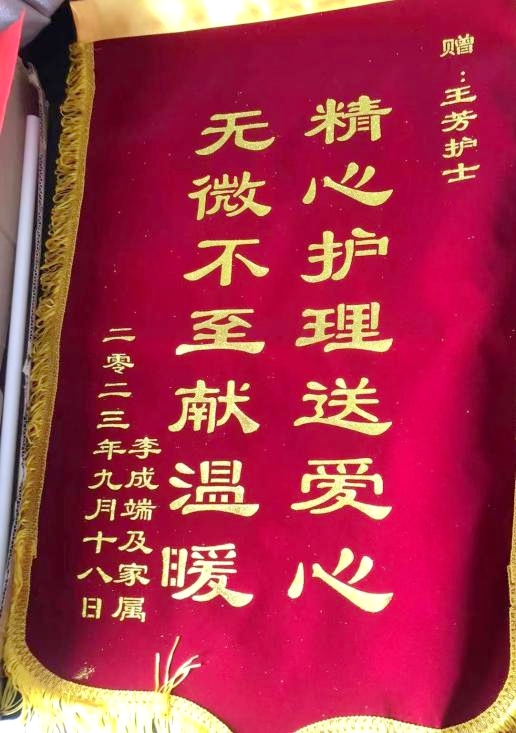 赠：王芳护士
精心护理送爱心
无微不至献温暖
李成端及家属
二零二三年九月十八日